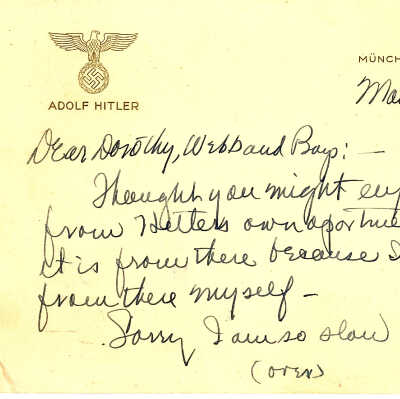 MÜNCH
ADOLF HITLER
Ma
Dear Dorothy, Webb and Boys: —
Thought you might enj
from Hitlers own apartme
it is from there because I
from there myself —
Sorry I am so slow
(over)